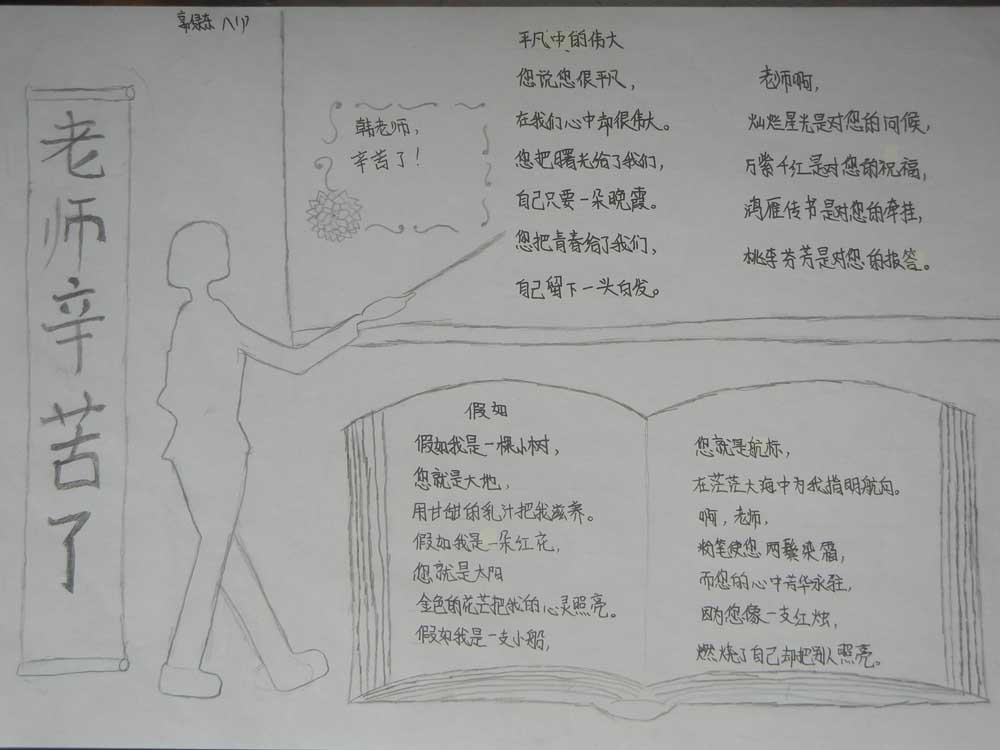 八(1)
老师辛苦了
韩老师,
辛苦了!
平凡中的伟大
您说您很平凡,
在我们心中却很伟大。
您把曙光给了我们,
自己只要一朵晚霞。
您把青春给了我们,
自己留下一头白发。
老师啊,
灿烂星光是对您的问候,
万紫千红是对您的祝福,
鸿雁传书是对您的牵挂,
桃李芬芳是对您的报答。
假如
假如我是一棵小树,
您就是大地,
用甘甜的乳汁把我滋养。
假如我是一朵红花,
您就是太阳
金色的花芒把我的心灵照亮。
假如我是一支小船,
您就是航标,
在茫茫大海中为我指明航向。
啊,老师,
粉笔使您两鬓染霜,
而您的心中芳华永驻,
因为您像一支红烛,
燃烧了自己却把别人照亮。